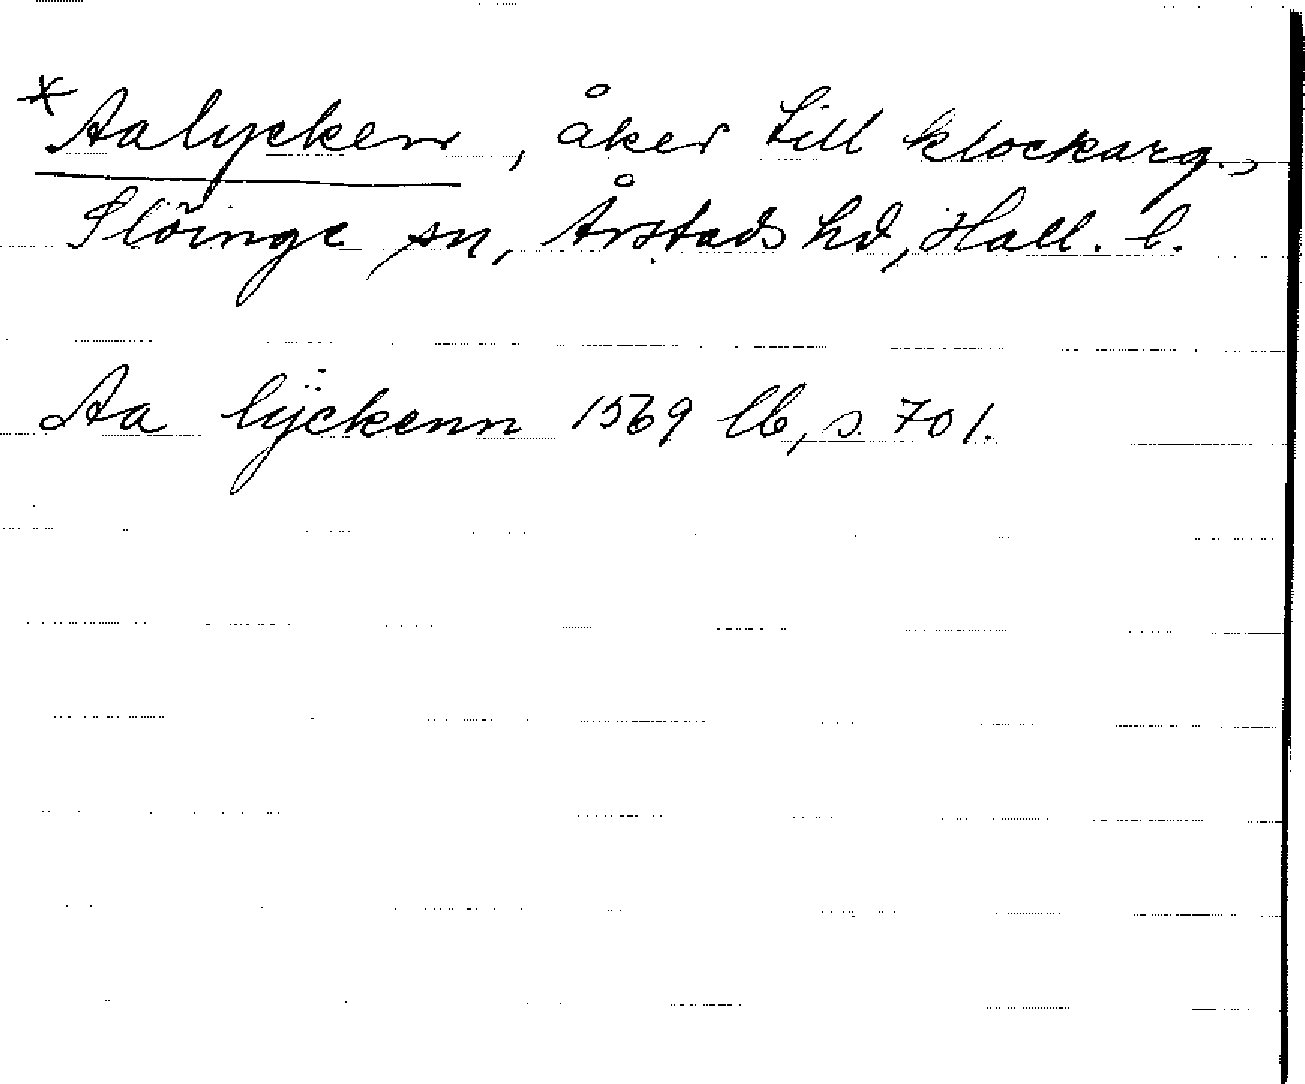 *Aalycken, åker till klockarg.,
Slöinge sn, Årstads hd, Hall. l.
Aa lÿckenn 1569 lb, s. 701.